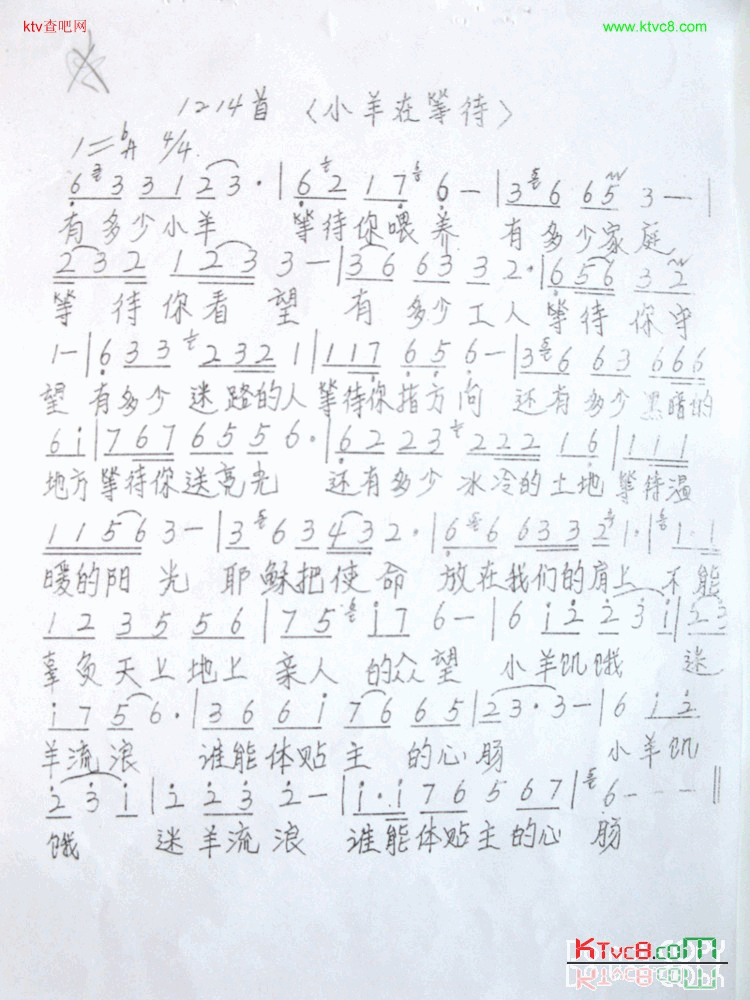 ktv查吧网
www.ktvc8.com
1214首 〈小羊在等待〉
1=bA 4/4
6 3 3 1 2 3 · | 6 2 1 7 6 — | 3 6 6 5 3 — — |
有多少小羊 等待你喂养 有多少家庭
2 3 2 1 2 3 3 — | 3 6 6 3 3 2 · | 6 5 6 3 2
等待你看望 有多少工人 等待你守
1 — | 6 3 3 2 3 2 1 | 1 1 7 6 5 6 — | 3 6 6 3 6 6 6
望 有多少迷路的人 等待你指方向 还有多少黑暗的
6 i | 7 6 7 6 5 5 6 · | 6 2 2 3 2 2 2 1 6 | 1 1 1
地方 等待你送亮光 还有多少冰冷的土地 等待温
1 1 5 6 3 — | 3 6 3 4 3 2 · | 6 6 6 3 3 2 1 · | 1 · 1
暖的阳光 耶稣把使命 放在我们的肩上 不能
1 2 3 5 5 6 | 7 5 i 7 6 — | 6 i 2 2 3 i | 2 3
辜负天上地上亲人的众望 小羊饥饿 迷
i 7 5 6 · | 3 6 6 i 7 6 6 5 | 2 3 · 3 — | 6 i 2
羊流浪 谁能体贴主的心肠 小羊饥
2 3 i | 2 2 3 2 — | i · i 7 6 5 6 7 | 6 - - - ‖
饿 迷羊流浪 谁能体贴主的心肠
KTvc8.com